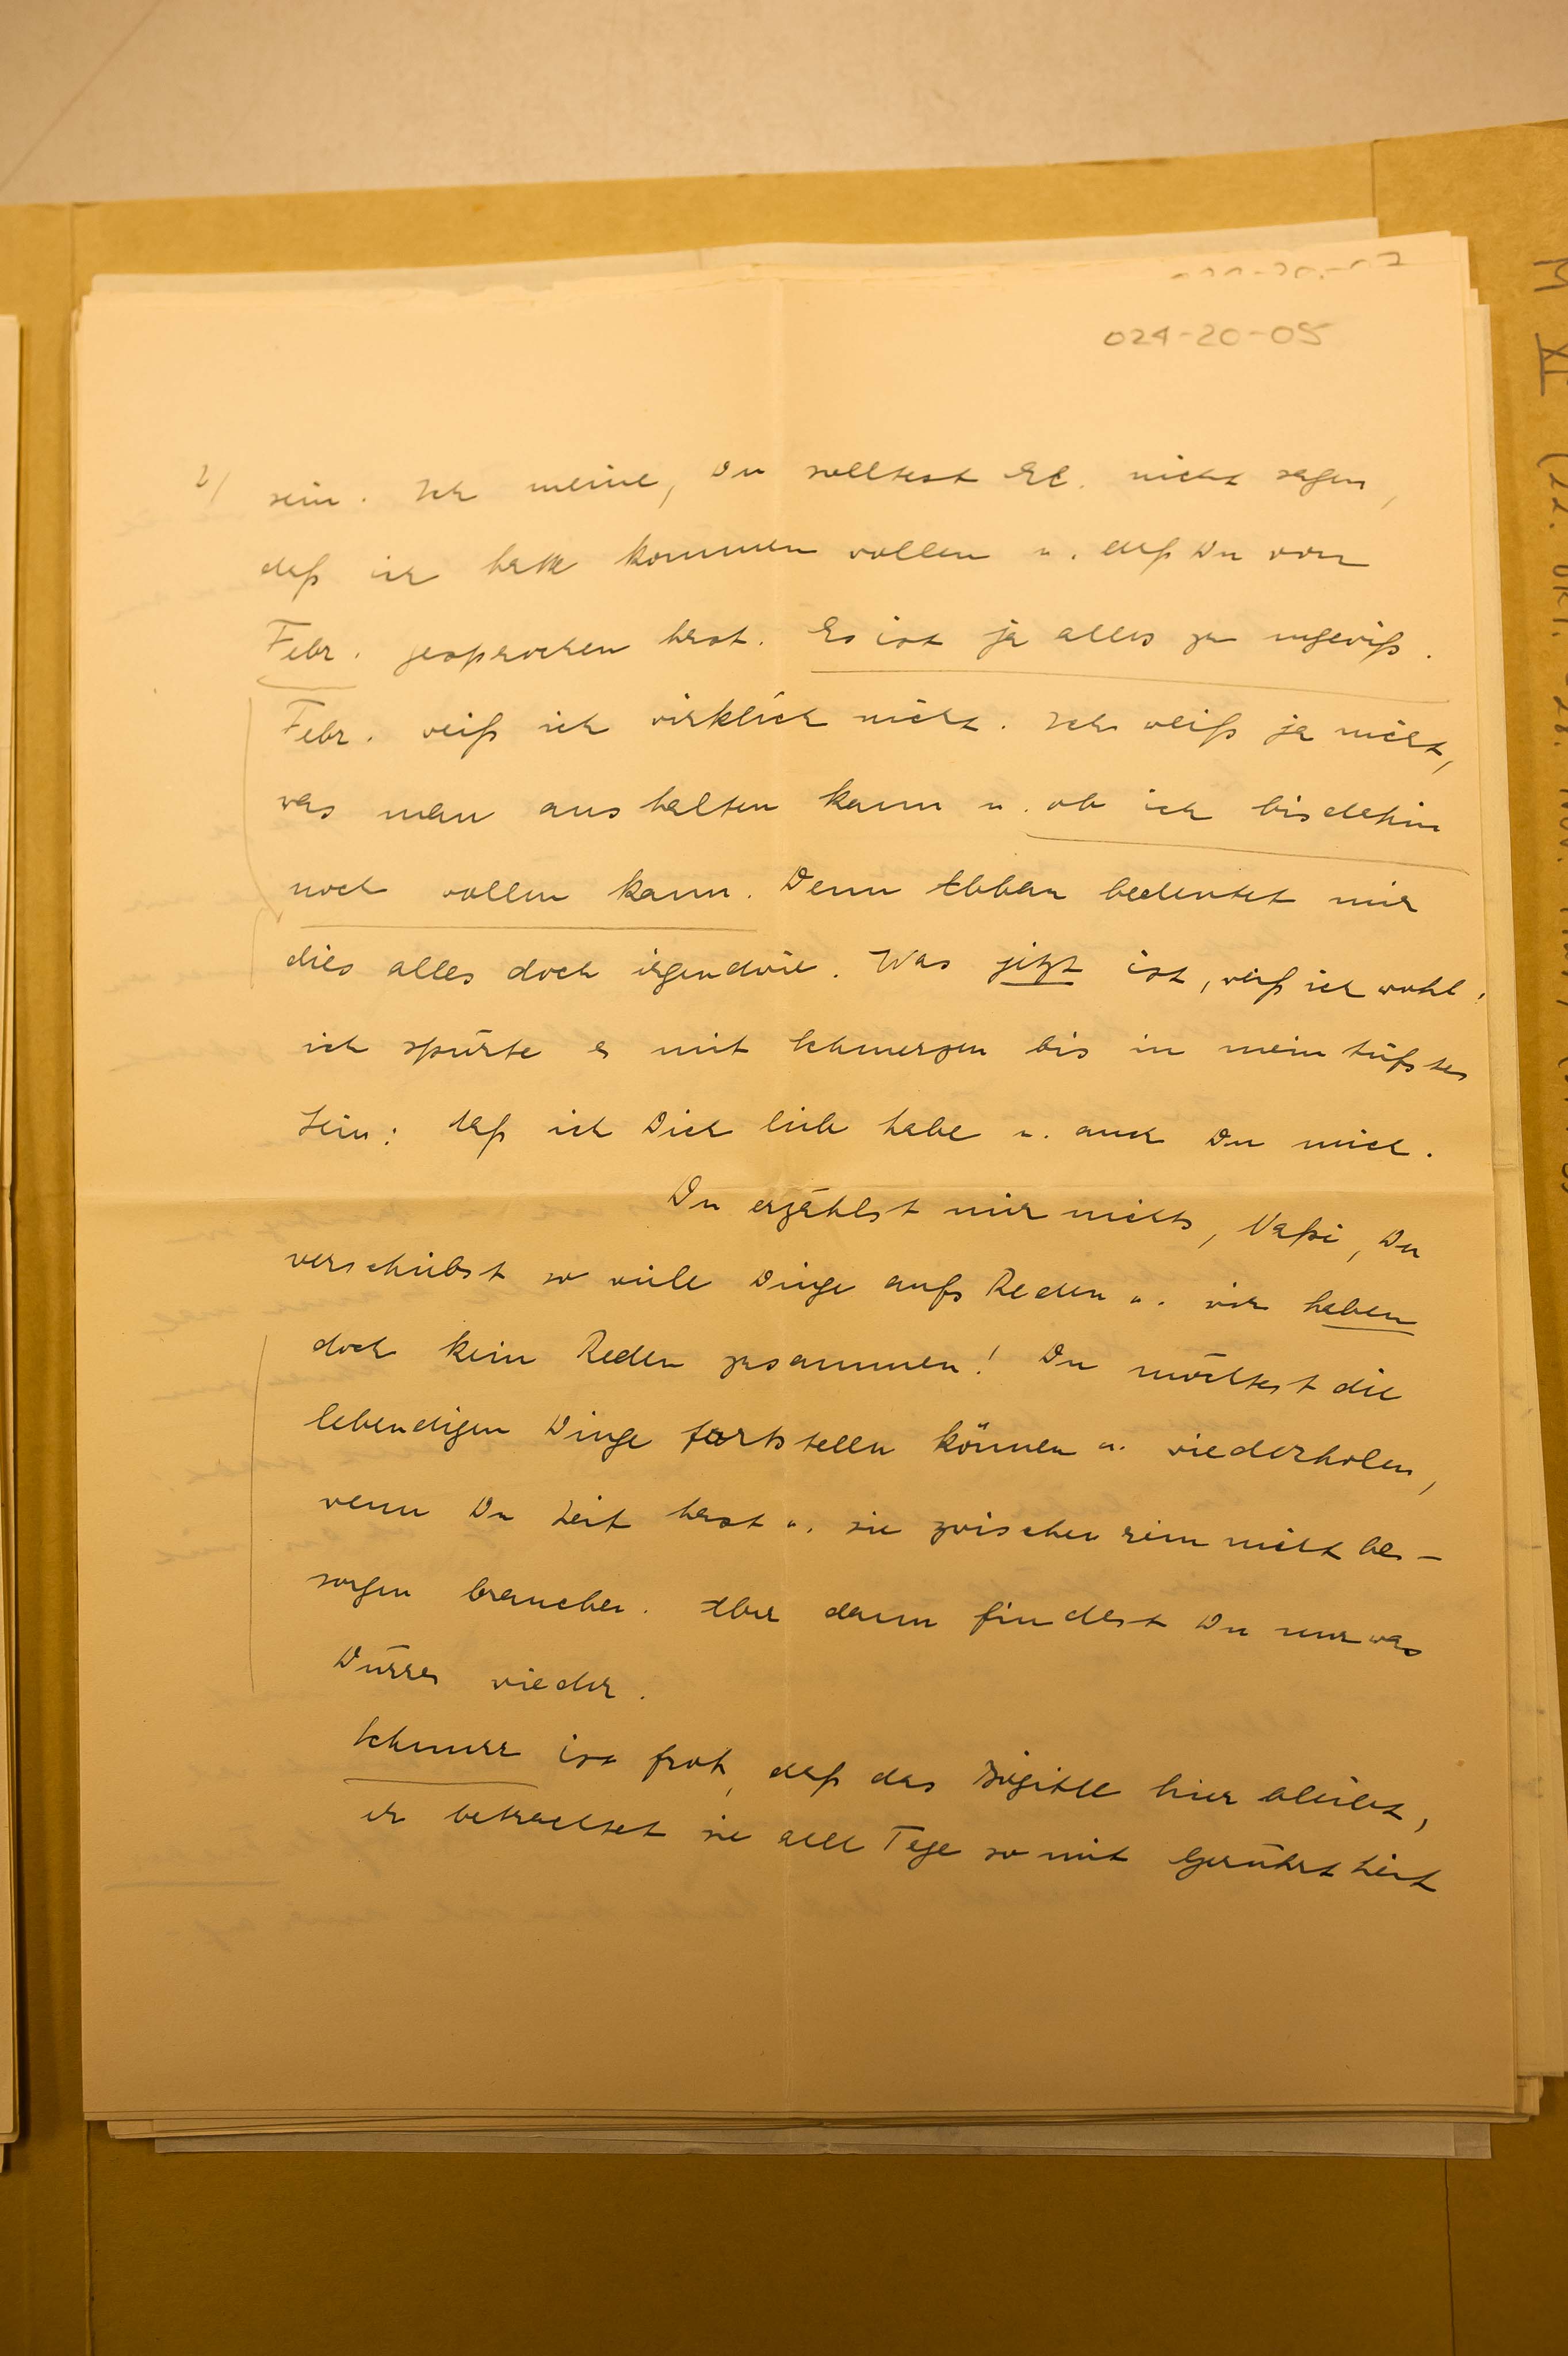 024-20-05
2/ sein. Ich meine, Du solltest El. nicht sagen,
daß ich hatte kommen wollen u. daß Du von
Febr. gesprochen hast. Es ist ja alles zu ungewiß.
Febr. weiß ich wirklich nicht. Ich weiß ja nicht,
was man aushalten kann u. ob ich bis dahin
noch wollen kann. Denn Abbau bedeutet mir
dies alles doch irgendwie. Was jetzt ist, weiß ich wohl,
ich spürte es mit Schmerzen bis in mein tiefstes
Sein: daß ich Dich lieb habe u. auch Du mich.
Du erzählst mir nichts, Du
verschiebst so viele Dinge aufs Reden u. wir haben
doch kein Reden zusammen! Du möchtest die
lebendigen Dinge fortstellen können u. wiederholen,
wenn Du Zeit hast u. sie zwischen rein nicht be-
sorgen brauchen. Aber dann findest Du nur was
Dürres wieder.
Schnurr ist froh, daß das hier bleibt,
er betrachtet sie alle Tage so mit Gerührtheit
M XI